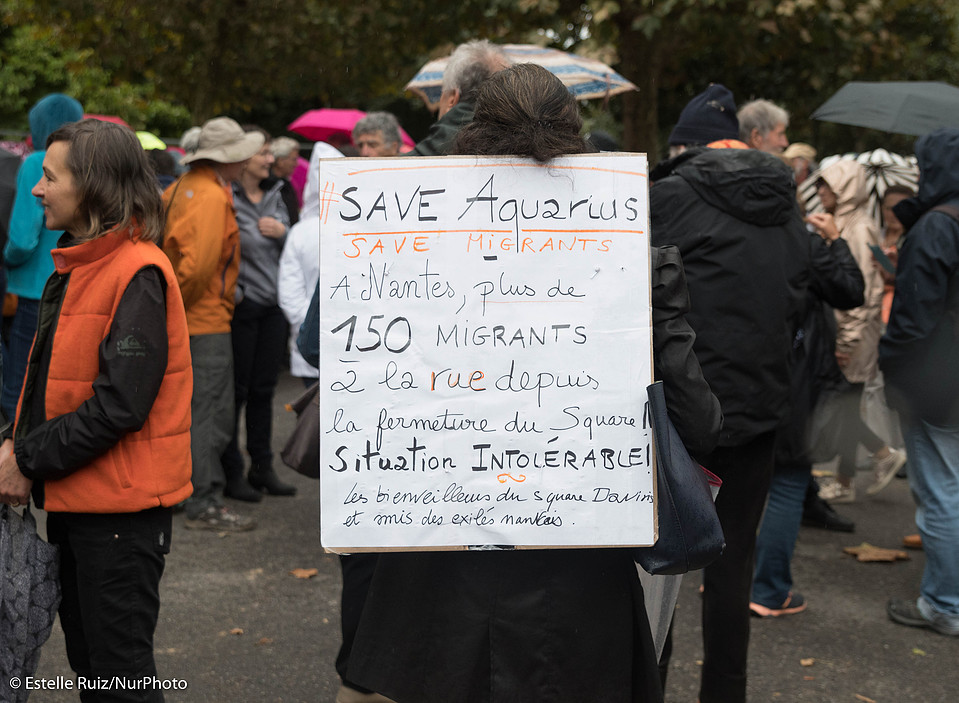 #SAVE Aquarius
SAVE MIGRANTS
A Nantes, plus de
150 MIGRANTS
à la rue depuis
la fermeture du Square!
Situation INTOLÉRABLE!
Les bienveilleurs du square Daviais
et amis des exilés nantais.
© Estelle Ruiz/NurPhoto